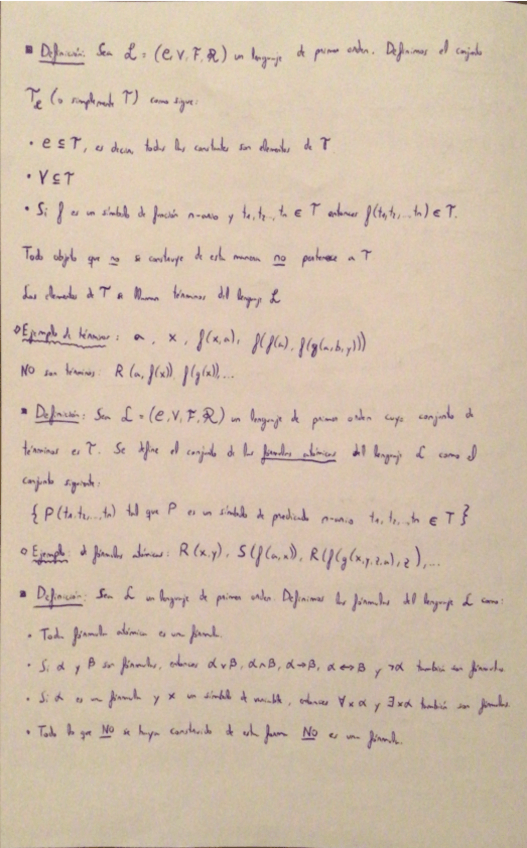 ▪ Definición: Sea L = (C, V, F, R) un lenguaje de primer orden. Definimos el conjunto
T_L (o simplemente T) como sigue:
• C ⊆ T, es decir, todas las constantes son elementos de T.
• V ⊆ T
• Si f es un símbolo de función n-ario y t₁, t₂, ..., tₙ ∈ T entonces f(t₁, t₂, ..., tₙ) ∈ T.
Todo objeto que no se construye de esta manera no pertenece a T
Los elementos de T se llaman términos del lenguaje L
◦ Ejemplo de términos: a, x, f(x,a), f(f(a), f(g(a,b,y)))
NO son términos: R(a, f(x)), f(g(x)),...
▪ Definición: Sea L = (C, V, F, R) un lenguaje de primer orden cuyo conjunto de
términos es T. Se define el conjunto de las fórmulas atómicas del lenguaje L como el
conjunto siguiente:
{ P(t₁, t₂, ..., tₙ) tal que P es un símbolo de predicado n-ario t₁, t₂, ..., tₙ ∈ T }
◦ Ejemplo: d fórmulas atómicas: R(x,y), S(f(a,x)), R(f(g(x,y,z,a),z),...
▪ Definición: Sea L un lenguaje de primer orden. Definimos las fórmulas del lenguaje L como:
• Toda fórmula atómica es una fórmula.
• Si α y β son fórmulas, entonces α∨β, α∧β, α→β, α↔β y ¬α también son fórmulas.
• Si α es una fórmula y x un símbolo de variable, entonces ∀xα y ∃xα también son fórmulas.
• Todo lo que NO se haya construido de esta forma NO es una fórmula.